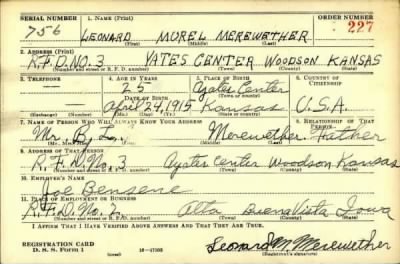 SERIAL NUMBER 1. NAME (Print) ORDER NUMBER
756 LEONARD MOREL MEREWETHER 227
(First) (Middle) (Last)
2. ADDRESS (Print)
R.F.D. NO. 3 YATES CENTER WOODSON KANSAS
(Number and street or R. F. D. number) (Town) (County) (State)
3. TELEPHONE 4. AGE IN YEARS 5. PLACE OF BIRTH 6. COUNTRY OF CITIZENSHIP
25 Yates Center
DATE OF BIRTH (Town or county)
April 24, 1915 Kansas U.S.A.
(Exchange) (Number) (Mo.) (Day) (Yr.) (State or country)
7. NAME OF PERSON WHO WILL ALWAYS KNOW YOUR ADDRESS 8. RELATIONSHIP OF THAT PERSON
Mr. By L. Merewether Father
(Mr., Mrs., Miss) (First) (Middle) (Last)
9. ADDRESS OF THAT PERSON
R.F.D. No. 3 Yates Center Woodson Kansas
(Number and street or R. F. D. number) (Town) (County) (State)
10. EMPLOYER'S NAME
Joe Bensene
11. PLACE OF EMPLOYMENT OR BUSINESS
R.F.D. No. 2 Alta Buena Vista Iowa
(Number and street or R. F. D. number) (Town) (County) (State)
I AFFIRM THAT I HAVE VERIFIED ABOVE ANSWERS AND THAT THEY ARE TRUE.
REGISTRATION CARD
D. S. S. Form 1 16—17105 Leonard M. Merewether
(Registrant's signature)